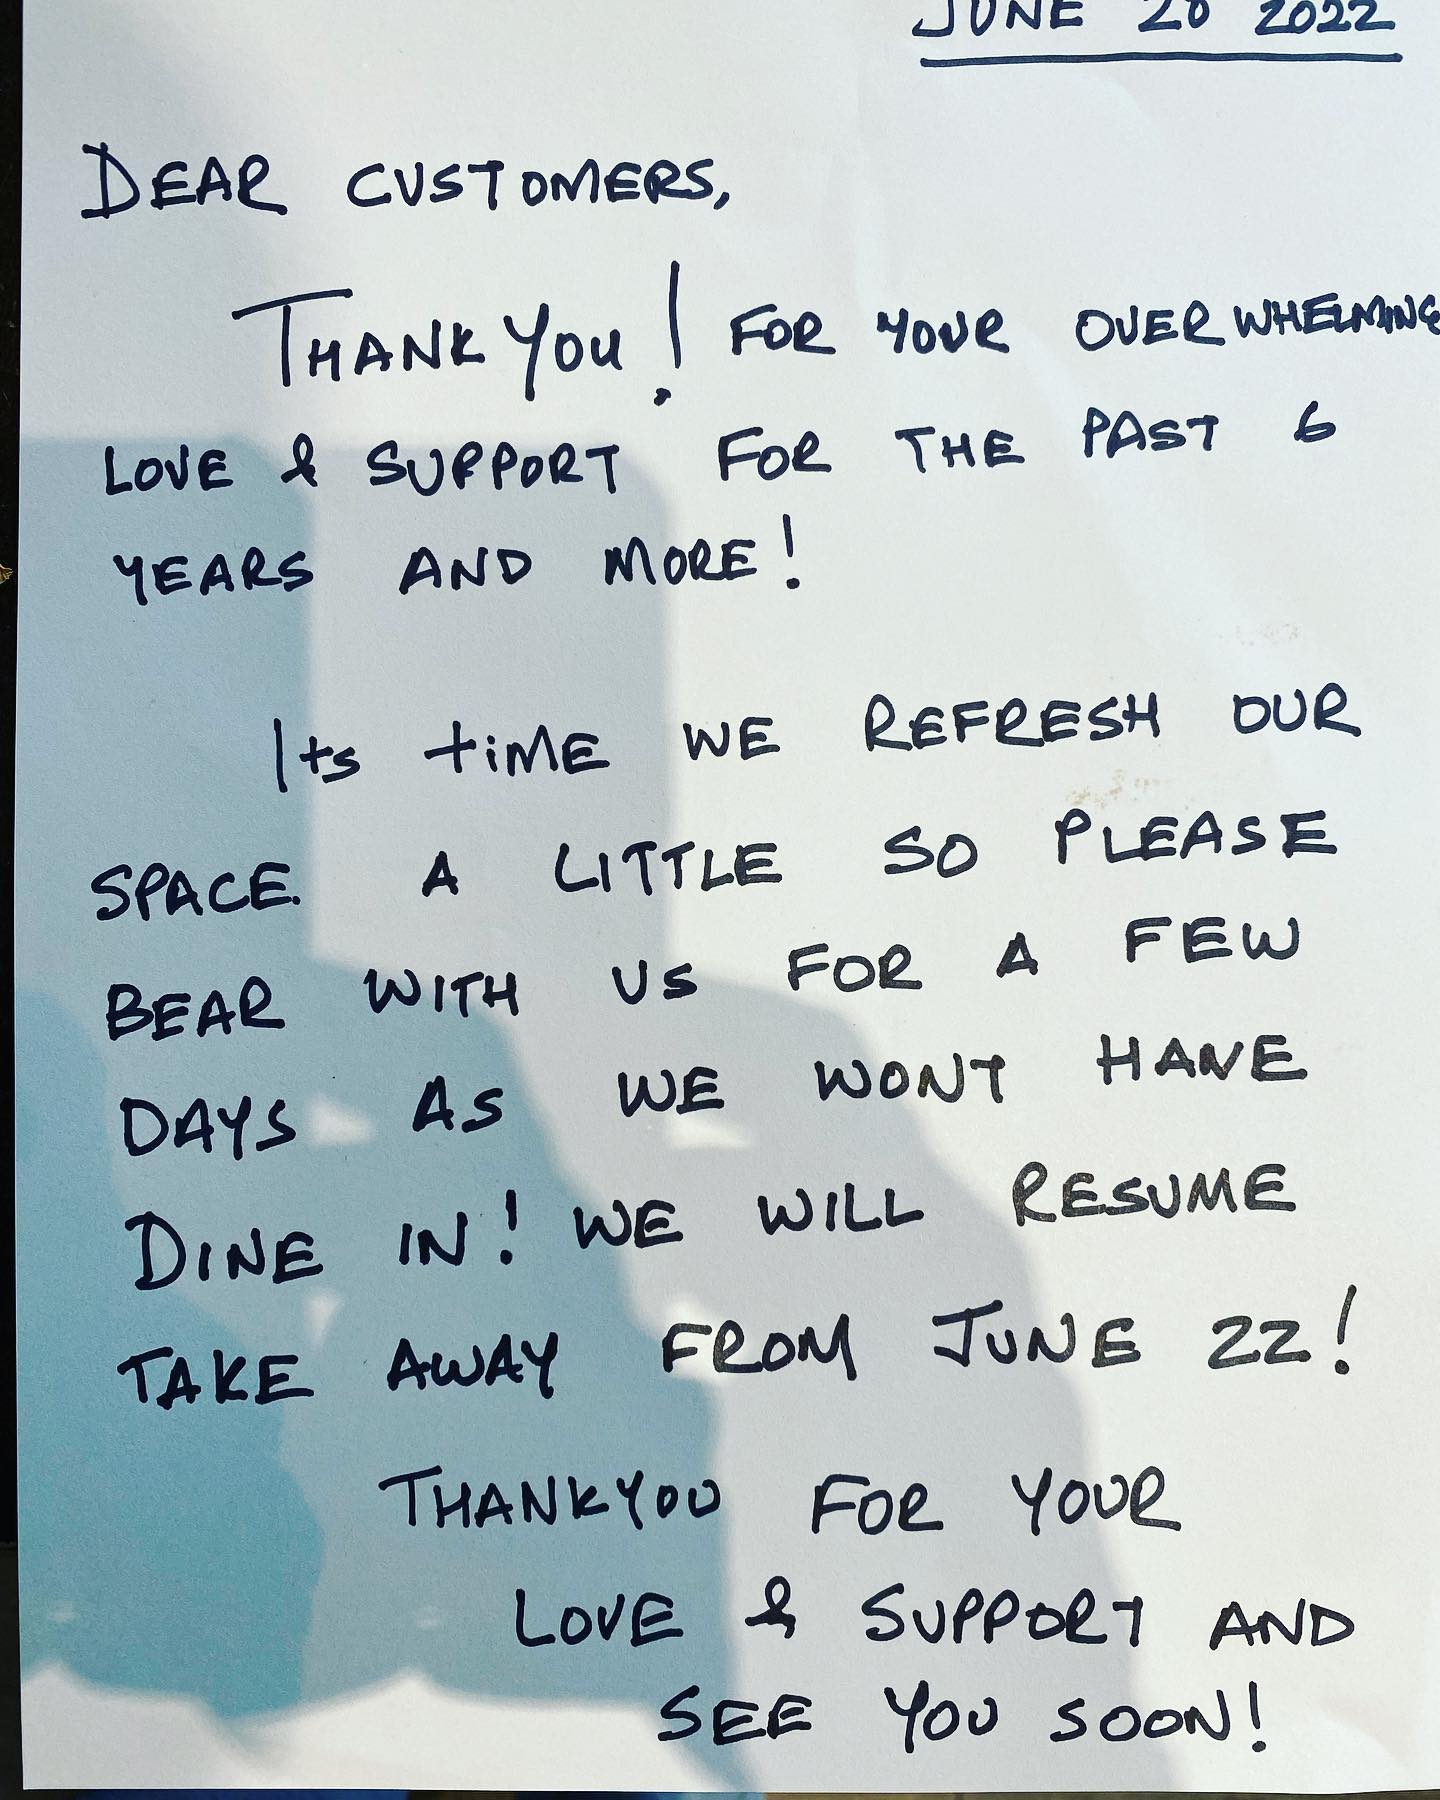 JUNE 20 2022
DEAR CUSTOMERS,
THANK YOU! FOR YOUR OVERWHELMING
LOVE & SUPPORT FOR THE PAST 6
YEARS AND MORE!
Its time WE REFRESH OUR
SPACE. A LITTLE SO PLEASE
BEAR WITH US FOR A FEW
DAYS AS WE WONT HAVE
DINE IN! WE WILL RESUME
TAKE AWAY FROM JUNE 22!
THANKYOU FOR YOUR
LOVE & SUPPORT AND
SEE YOU SOON!